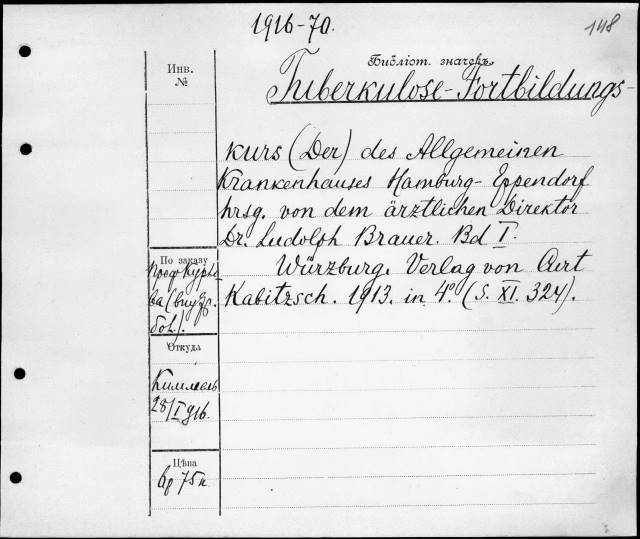 1916-70.
148
Библіот. значекъ
Инв.
№
Tuberkulose-Fortbildungs-
kurs (Der) des Allgemeinen
Krankenhauses Hamburg-Eppendorf
hrsg. von dem ärztlichen Direktor
Dr. Ludolph Brauer. Bd I.
Würzburg. Verlag von Curt
Kabitzsch. 1913. in 4° (S. XI. 324).
По заказу
Проф Курло
ва
бол.).
Откуда
Киммель
28/I 916.
Цѣна
75 к